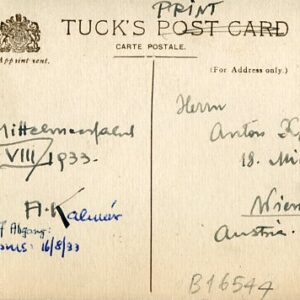 PRINT
TUCK'S POST CARD
CARTE POSTALE.
(For Address only.)
Mittelmeerfahrt
VIII/1933.
A. Kalmár
Abgang:
16/8/33
Herrn
Anton
18.
Wien
Austria.
B16544